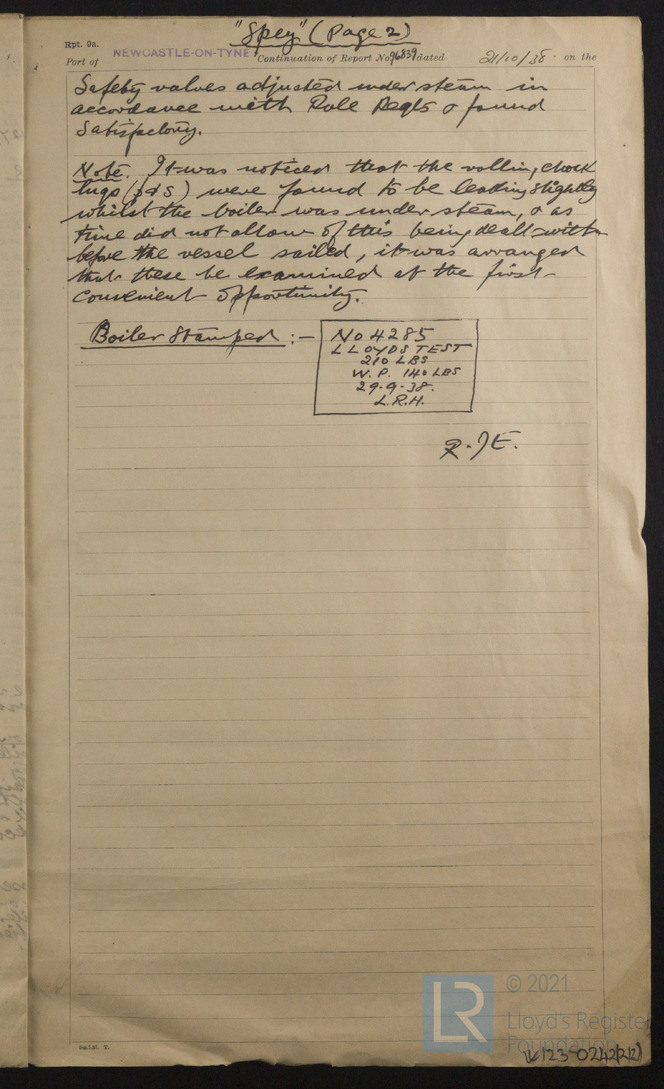 "Spey" (Page 2)
Rpt. 9a.
Port of NEWCASTLE-ON-TYNE Continuation of Report No 96839 dated 21/10/38 on the
Safety valves adjusted under steam in
accordance with Rule Reqts & found
satisfactory.
Note. It was noticed that the rolling chock
lugs (p & s) were found to be leaking slightly
whilst the boiler was under steam, & as
time did not allow of this being dealt with
before the vessel sailed, it was arranged
that these be examined at the first
convenient opportunity.
Boiler Stamped :-
No 4285
LLOYDS TEST
210 LBS
W.P. 140 LBS
29.9.38.
L.R.H.
LR
© 2021
Lloyd's Register
Foundation
W123-0242(2/2)